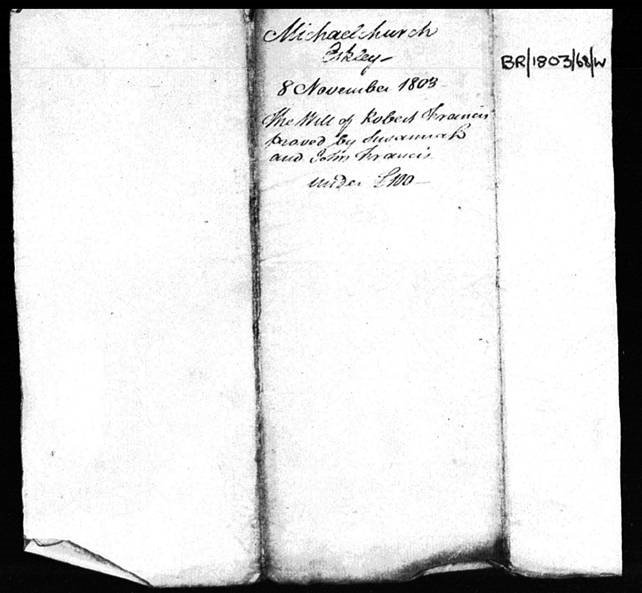 Michaelchurch
Eskley
8 November 1803
The Will of Robert Francis
proved by Susannah
and John Francis
under £100
BR/1803/68/W